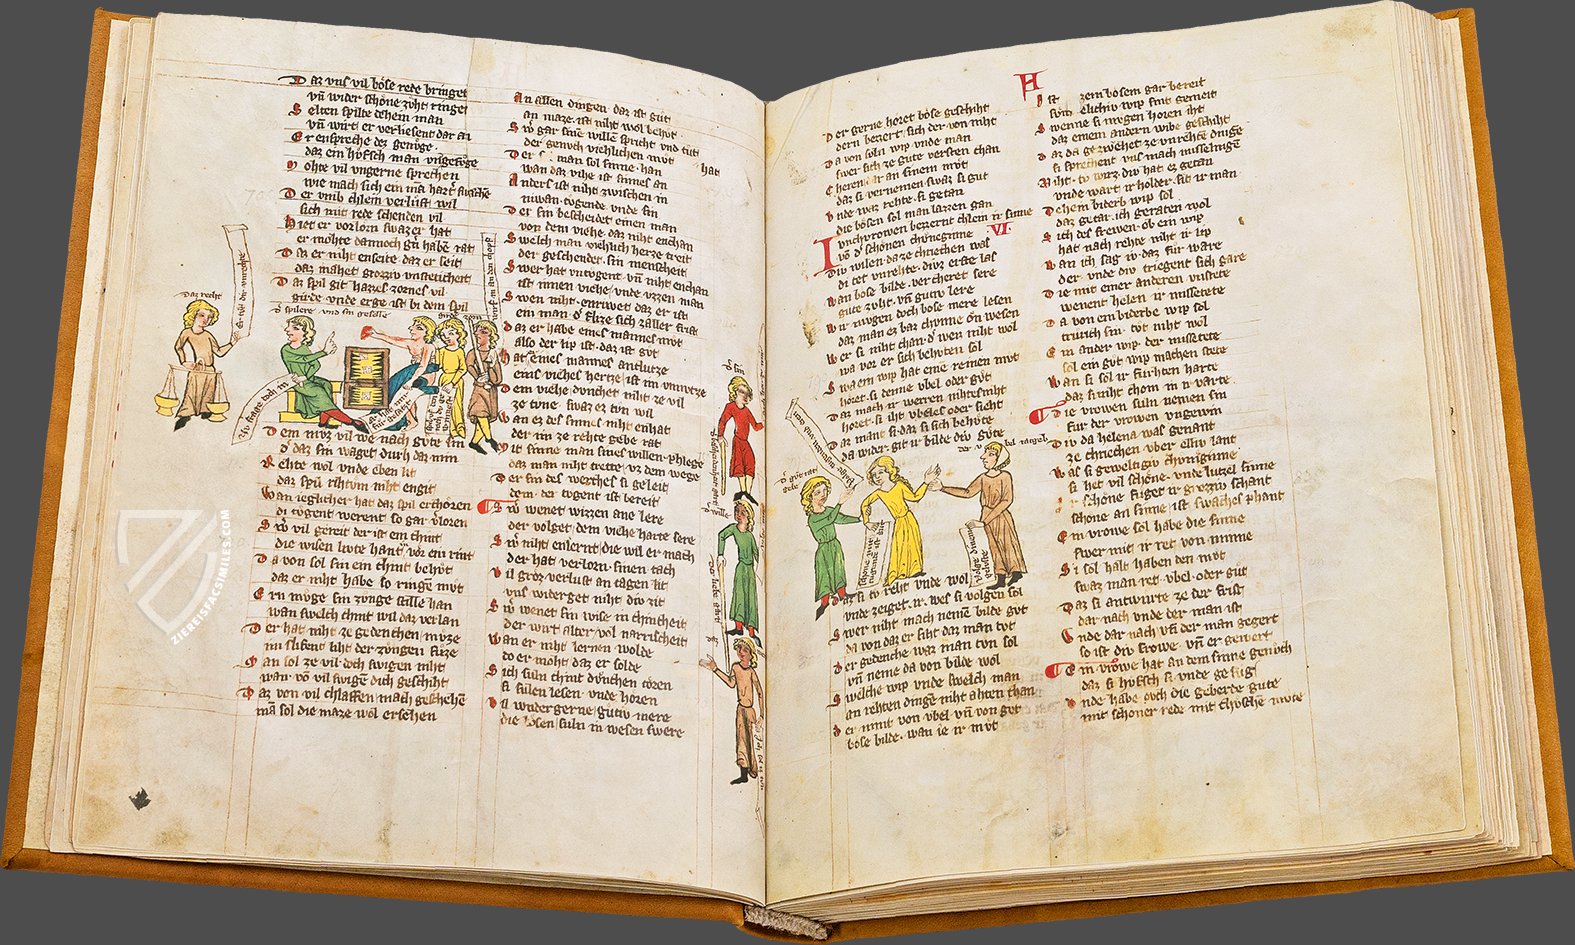 Daz vns vil böse rede bringet
vn̄ wider schöne zvht ringet
Selten spilte dehein man
vn̄ wirt er verliesent dar an
Er enspreche des genvge
daz ein hofsch man vngefvge
Mohte vil vngerne sprechen
Der vmb chlein verlust wil
sich mit rede schenden vil
Hiet er vorlorn swaz er hat
er möhte dannoch gvn haben rat
Daz er niht enseite daz er seit
daz mahet grozziv vnstetichert
Daz spil git hazzes zornes vil
girde vnde erge ist bi dem spil
Daz recht
Dem mvz vil we nach gvte sin
d̓ daz sin waget durh daz min
Rehte wol vnde eben lit
daz spil rihtvm niht engit
Wan ieglicher hat daz spil erchorn
di tögent werent so gar vloren
Sw̓ vil gereit der ist ein chint
die wisen livte hant vor ein rint
Da von sol sin ein chint behöt
daz er niht habe so ringen mvt
Ern mvge sin zvnge stille han
wan swelch chint wil daz verlan
Der hat niht ze gedenchen mvze
im slifent liht der zvngen fvze
Man sol ze vil doch swigen niht
wan vo vil swigen dich geschiht
Daz von vil chlaffen mach geschehen
mā sol die maze wol ersehen
An allen dingen daz ist gvt
an maze ist niht wol behöt
Sw̓ gar sinē willē spricht vnd tvt
der genvch viehlichen mvt
Der man sol sinne han
hat
wan daz vihe ist sinnes an
Anders ist niht zwischen in
niwan tögende vnde sin
Der sin bescheidet einen man
von dem viehe daz niht enchan
Swelch man viehlich herze treit
der geschendet sin menscheit
Swer hat vntogent vn̄ niht enchan
ist innen viehe vnde vzzen man
Swen niht enriwet daz er ist
ein man d̓ flize sich zaller frist
Daz er habe eines mannes mvt
also der lip ist daz ist gvt
Hat eines mannes antlutze
eins viehes hertze ist im vnnvtze
Dem viehe dvnchet niht ze vil
ze tvne swaz ez tvn wil
Wan ez des sinnes niht enhat
der im ze rehte gebe rat
Mit sinne man sines willen phlege
daz man niht trette vz dem wege
Der sin des werches si geleit
dem der togent ist bereit
Sw̓ wenet wizzen ane lere
der volget dem viehe harte sere
Sw̓ niht enlernt die wil er mach
der hat verlorn sinen tach
Vil groz verlust an tagen lit
vns widerget niht div zit
Sw̓ wenet sin wise in chintheit
der wirt alter vol narrischeit
Wan er niht lernen wolde
do er möht daz er solde
Sich svln chint dvnchen toren
si svlen lesen vnde horen
Vil wndergerne gvtiv mere
die bösen svln in wesen swere
Der gerne höret böse geschiht
dern bezzert sich der von niht
Da von svln wip vnde man
swer sich ze gvte versten chan
Cheren dar an sinem mvt
daz si vernemen swaz si gvt
Vnde waz rehte si getan
die bösen sol man lazzen gan
Ivnchvrowen bezzernt chlein ir sinne
vō d̓ schönen chvneginne
VI
Div wilen da ze chriechen was
di tet vnrehte divz erste las
Wan böse bilde vercheret sere
gvte zvht vn̄ gvtiv lere
Wir mvgen doch böse mere lesen
daz man ez baz chvnne ōn wesen
Wer si niht chan d̓ wen niht wol
wa vor er sich behvten sol
Swaem wip hat eine reinen mvt
höret si denne vbel oder gvt
Daz mach ir werren nihtesniht
höret si iht vbeles oder siht
Daz mant si daz si sich behöte
da wider git ir bilde div gvte
Daz si tv reht vnde wol
vnde zeiget ir wes si volgen sol
Swer niht mach nemē bilde gvt
da von daz er siht daz man tvt
Der gedenche waz man tvn sol
vn̄ neme da von bilde wol
Swelche wip vnde swelch man
an rehten dingē niht ahten chan
Der nimt von vbel vn̄ von gvt
böse bilde wan ie ir mvt
H
Ist zem bösem gar bereit
sōin elichiv wip sint gemeit
Swenne si mvgen hören iht
daz einem andern wibe geschiht
Daz da gezwehet ze vnrehtē dinge
si sprechent vns mach misselinge
Niht tv wirz div hat ez getan
vnde wart ir holder sit ir man
Dehein biderb wip sol
daz getar ich geraten wol
Sich des frewen ob ein wip
hat nach rehte niht ir lip
Wan ich sag iv daz fvr ware
der vnde div triegent sich gare
Die mit einer anderen vnstete
wenent helen ir missetete
Da von ein biderbe wip sol
trivrich sin tvt niht wol
Ein ander wip der missetete
sol ein gvt wip machen stete
Wan si sol ir fvrhten harte
daz si niht chom in ir varte
Die vrowen svln nemen sin
fvr der vrowen vngewin
Div da helena was genant
ze chriechen vber elliv lant
Was si geweltigiv chvniginne
si het vil schöne vnde lvzel sinne
Ir schöne fvget ir grozziv schant
schöne an sinne ist swaches phant
Ein vrowe sol habe die sinne
swer mit ir ret von minne
Si sol halt haben den mvt
swaz man ret vbel oder gvt
Daz si antwrte ze der frist
dar nach vnde der man ist
Vnde dar nach vn̄ der man gegert
so ist div frowe vn̄ er gewert
Ein vrowe hat an dem sinne genvch
daz si hofsch si vnde gefvg
Vnde habe ovch die geberde gvte
mit schoner rede mit chvsche mvte
ZIEREISFACSIMILES.COM